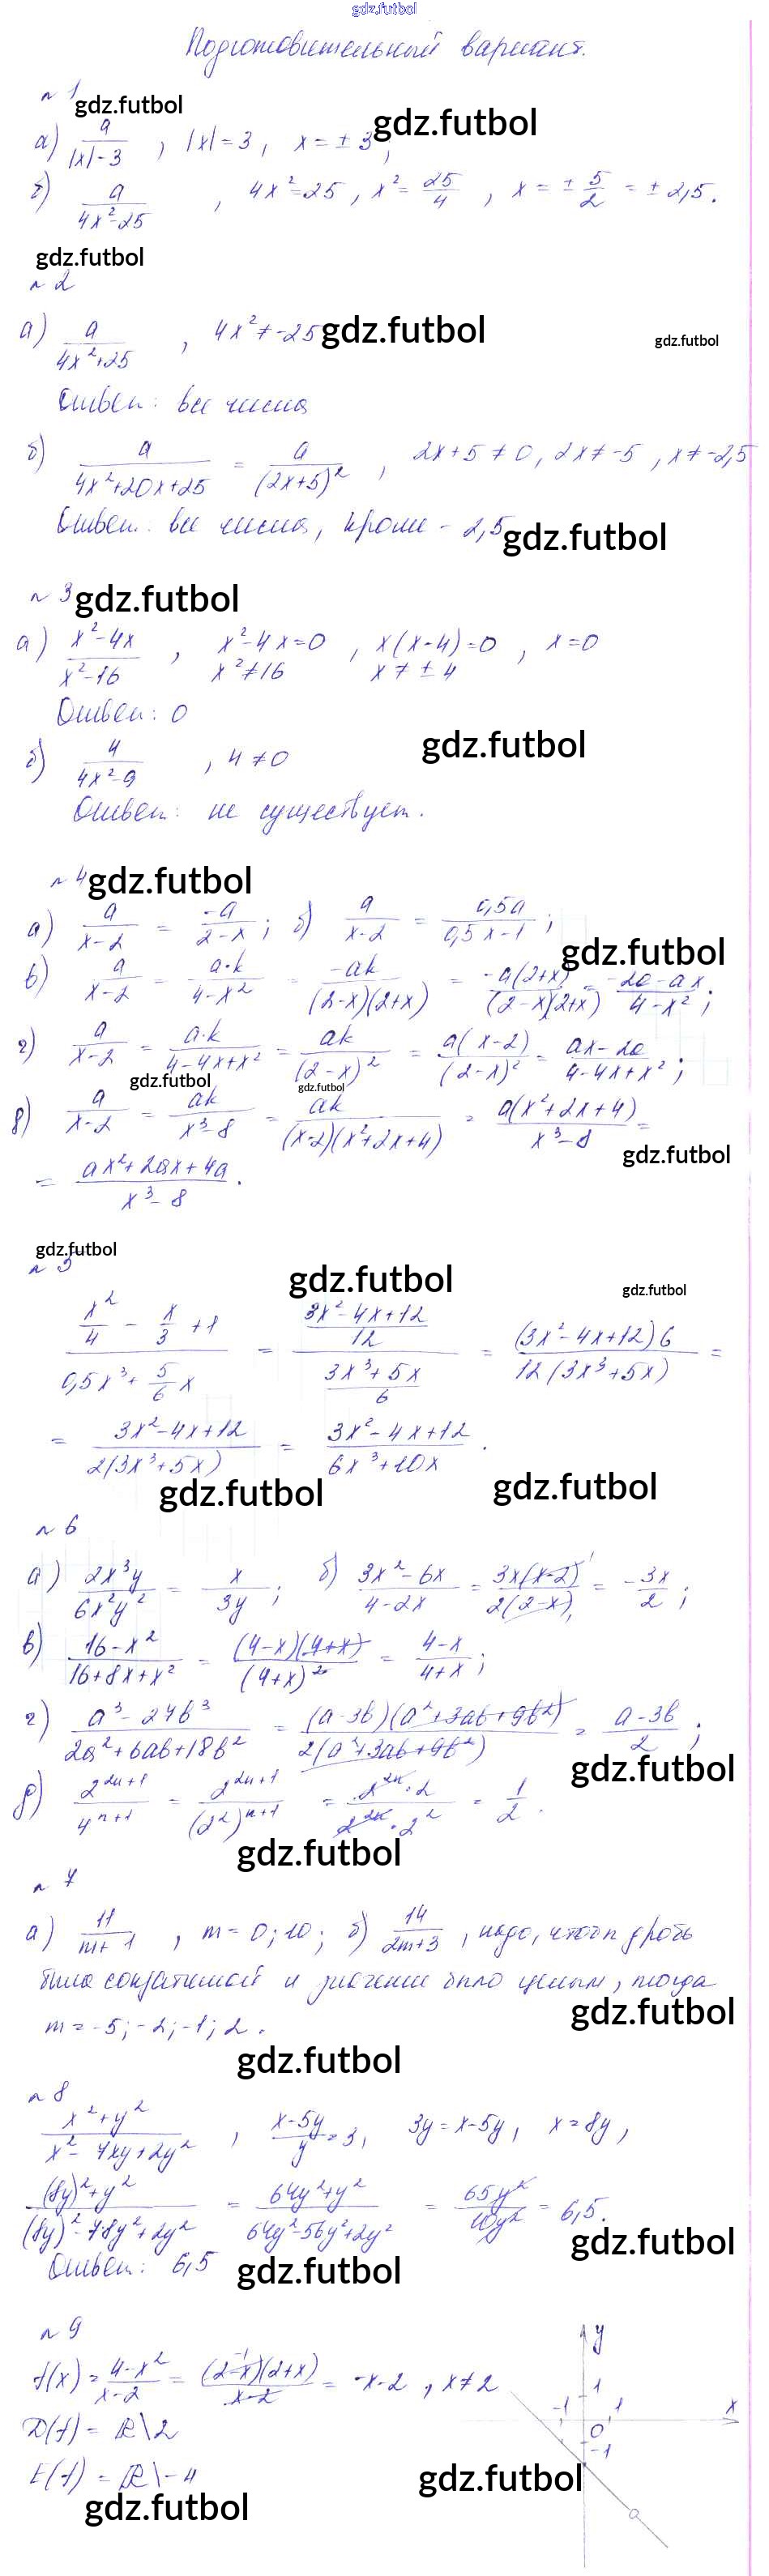 gdz.futbol
Подготовительный вариант.
№ 1 gdz.futbol
а) a/(|x|-3) , |x|=3, x=±3; gdz.futbol
б) a/(4x²-25) , 4x²=25, x²=25/4 , x=±5/2=±2,5.
gdz.futbol
№ 2
а) a/(4x²+25) , 4x²≠-25 gdz.futbol gdz.futbol
Ответ: все числа
б) a/(4x²+20x+25) = a/(2x+5)² , 2x+5≠0, 2x≠-5, x≠-2,5
Ответ: все числа, кроме -2,5 gdz.futbol
№ 3 gdz.futbol
а) (x²-4x)/(x²-16) , x²-4x=0 , x(x-4)=0 , x=0
x²≠16 x≠±4
Ответ: 0
б) 4/(4x²-9) , 4≠0 gdz.futbol
Ответ: не существует.
№ 4 gdz.futbol
а) a/(x-2) = -a/(2-x); б) a/(x-2) = 0,5a/(0,5x-1);
gdz.futbol
в) a/(x-2) = a·k/(4-x²) = -ak/((2-x)(2+x)) = -a(2+x)/((2-x)(2+x)) = (-2a-ax)/(4-x²);
г) a/(x-2) = a·k/(4-4x+x²) = ak/(2-x)² = a(x-2)/(2-x)² = (ax-2a)/(4-4x+x²);
gdz.futbol gdz.futbol
д) a/(x-2) = ak/(x³-8) = ak/((x-2)(x²+2x+4)) = a(x²+2x+4)/(x³-8) =
gdz.futbol
= (ax²+2ax+4a)/(x³-8).
gdz.futbol
№ 5
gdz.futbol gdz.futbol
(x²/4 - x/3 + 1)/(0,5x³+5/6 x) = ((3x²-4x+12)/12)/((3x³+5x)/6) = (3x²-4x+12)6/(12(3x³+5x)) =
= (3x²-4x+12)/(2(3x³+5x)) = (3x²-4x+12)/(6x³+10x).
gdz.futbol gdz.futbol
№ 6
а) 2x³y/(6x²y²) = x/(3y); б) (3x²-6x)/(4-2x) = 3x(x-2)/(2(2-x)) = -3x/2;
в) (16-x²)/(16+8x+x²) = (4-x)(4+x)/(4+x)² = (4-x)/(4+x);
г) (a³-27b³)/(2a²+6ab+18b²) = (a-3b)(a²+3ab+9b²)/(2(a²+3ab+9b²)) = (a-3b)/2;
gdz.futbol
д) 2²ⁿ⁺¹/4ⁿ⁺¹ = 2²ⁿ⁺¹/(2²)ⁿ⁺¹ = 2²ⁿ·2/(2²ⁿ·2²) = 1/2.
gdz.futbol
№ 7
а) 11/(m+1) , m=0; 10; б) 14/(2m+3) , надо, чтоб дробь
была сократимой и значение было целым, тогда
gdz.futbol
m=-5; -2; -1; 2.
gdz.futbol
№ 8
(x²+y²)/(x²-7xy+2y²) , (x-5y)/y=3, 3y=x-5y, x=8y,
((8y)²+y²)/((8y)²-7·8y²+2y²) = (64y²+y²)/(64y²-56y²+2y²) = 65y²/10y² = 6,5.
gdz.futbol
Ответ: 6,5 gdz.futbol
№ 9
y
f(x)=(4-x²)/(x-2) = (2-x)(2+x)/(x-2) = -x-2 , x≠2
-1
-1 1 1 x
0
-1
D(f) = R\2
E(f) = R\-4 gdz.futbol
gdz.futbol